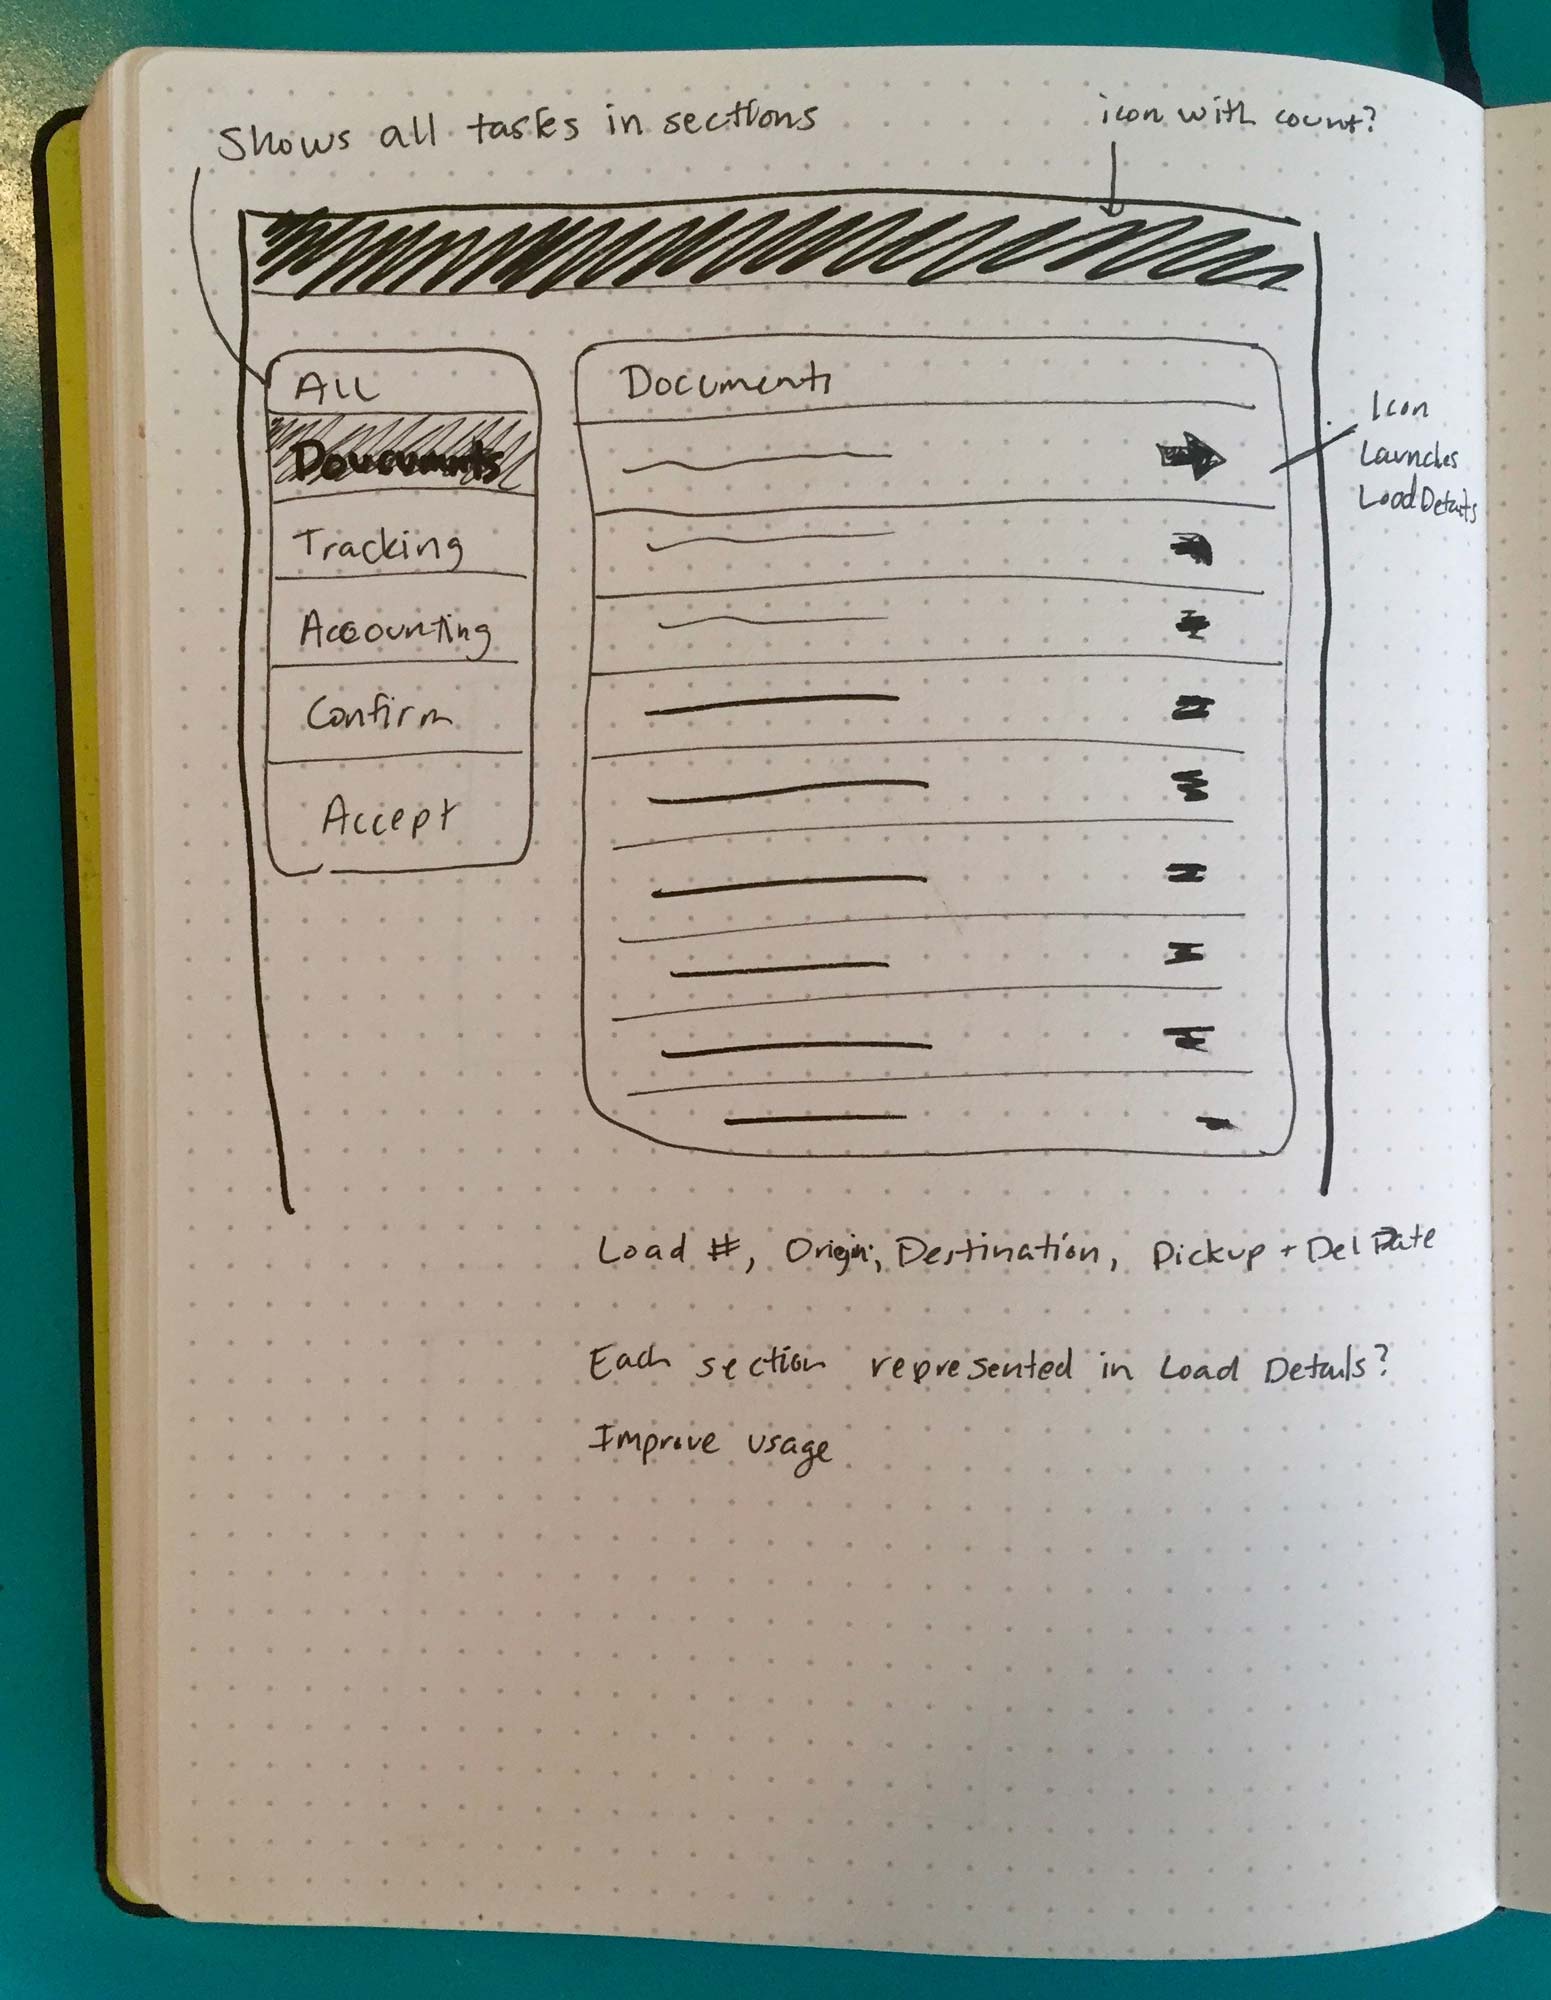 Shows all tasks in sections
icon with count?
ALL
Doucumnts
Tracking
Accounting
Confirm
Accept
Documents
Icon
Launches
Load Details
Load #, Origin, Destination, Pickup + Del Date
Each section represented in Load Details?
Improve usage